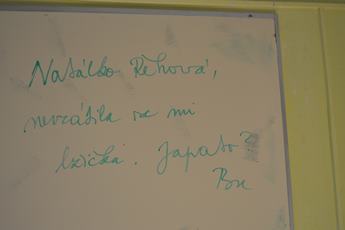 Natálko Řehová,
nevrátila se mi
lžička. Japato?